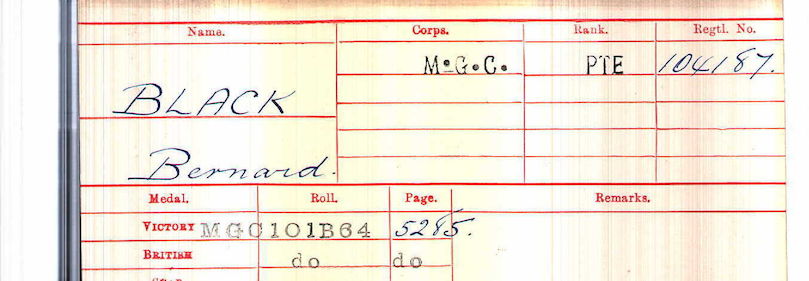 Name. Corps. Rank. Regtl. No.
M.G.C. PTE 104187.
BLACK
Bernard.
Medal. Roll. Page. Remarks.
VICTORY MGC101B64 5285.
BRITISH do do
STAR